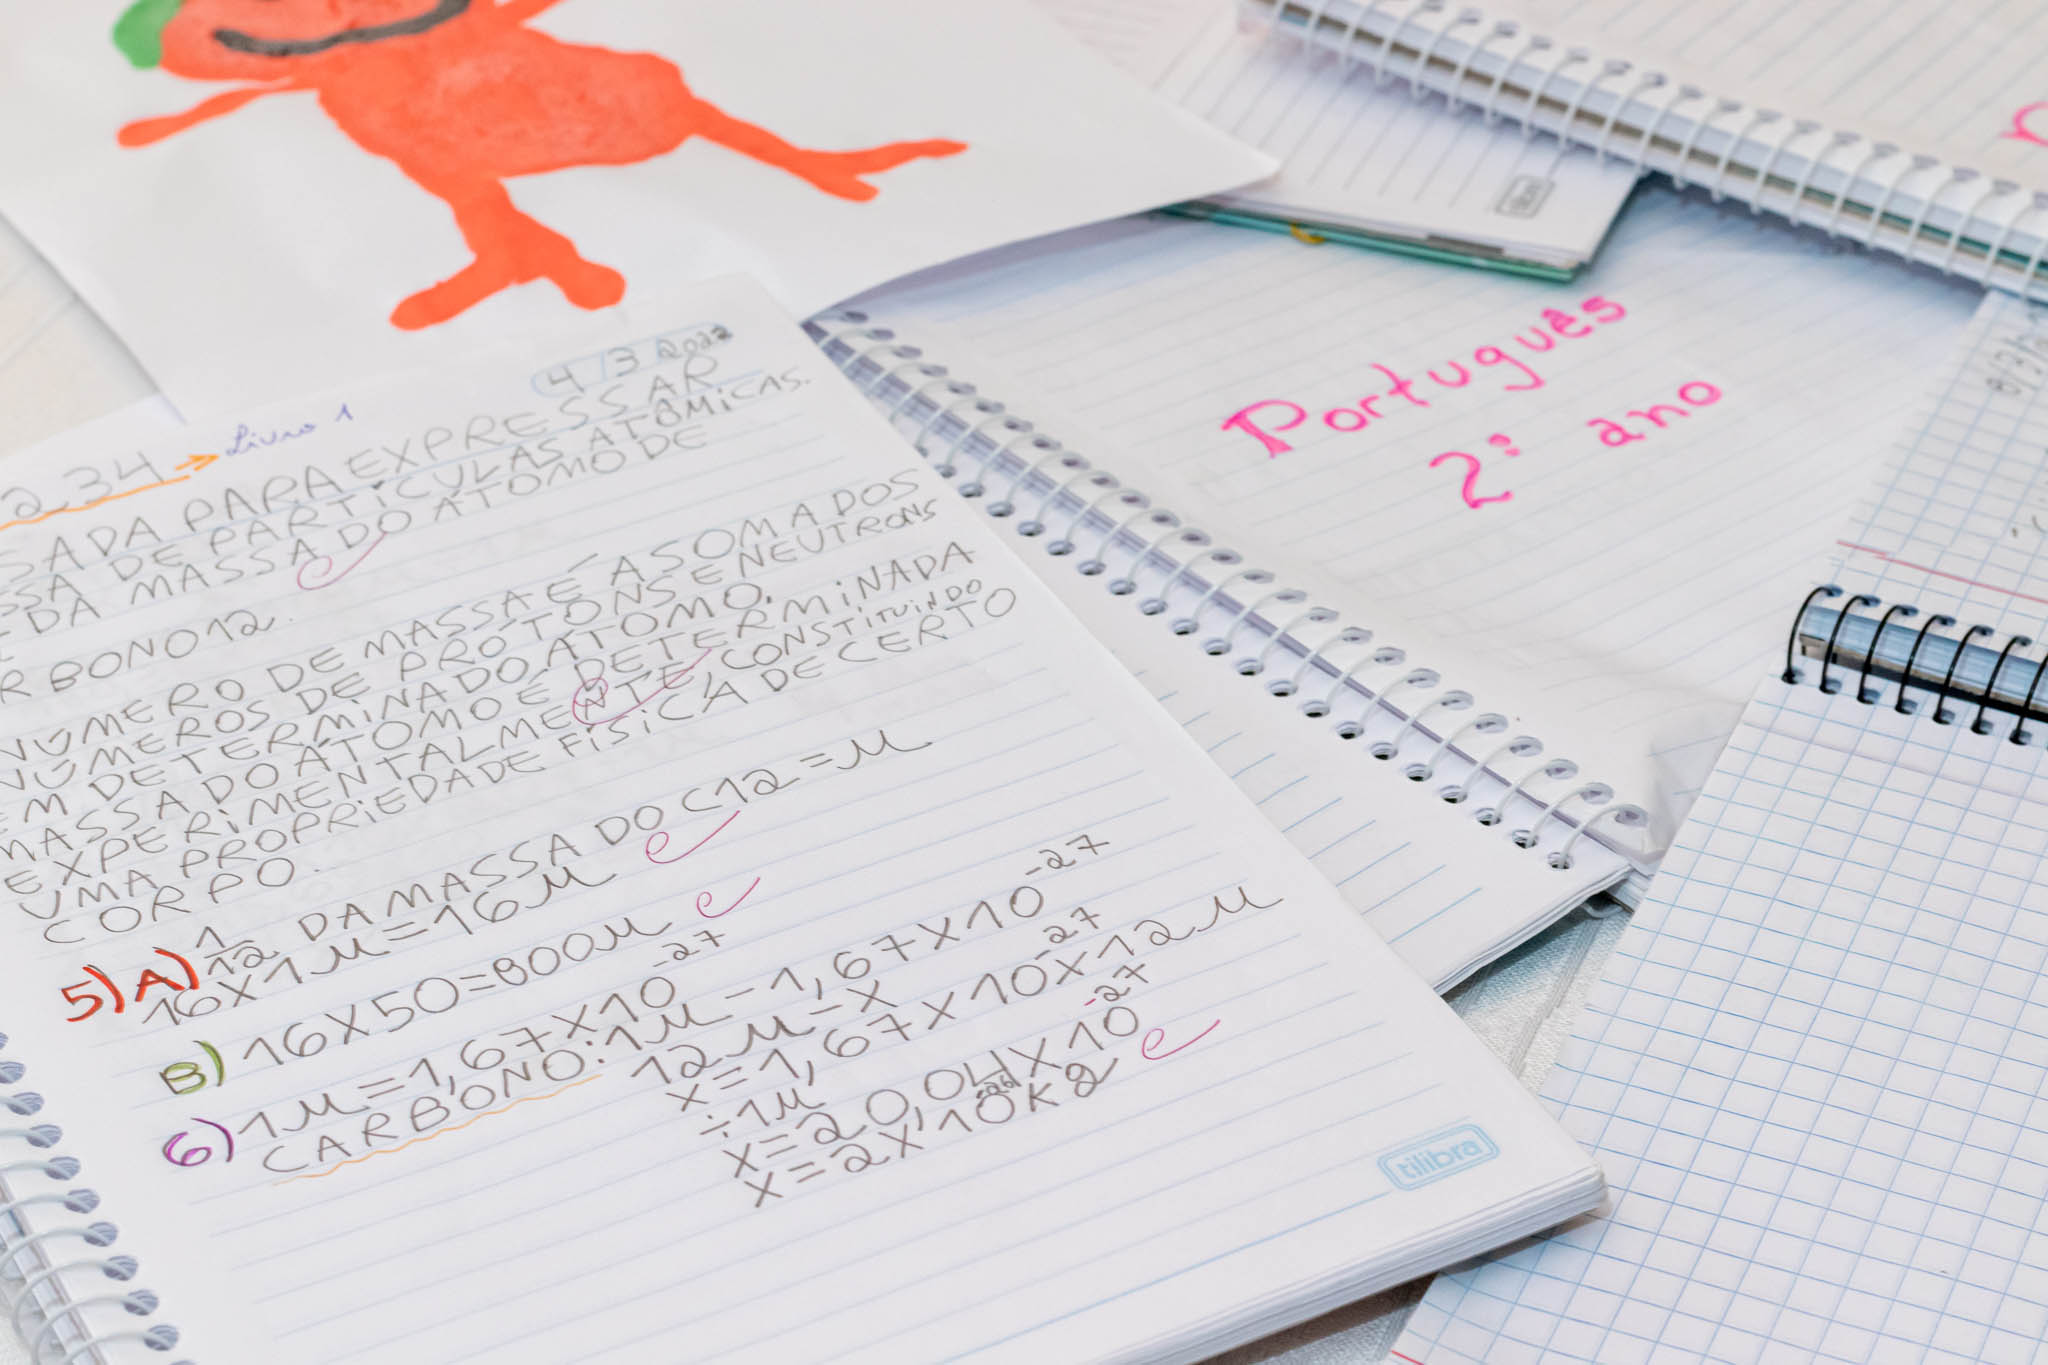 4/3 2022
234 → Livro 1
SADA PARA EXPRESSAR
SSA DE PARTÍCULAS ATÔMICAS.
DA MASSA DO ÁTOMO DE
RBONO12.
NÚMERO DE MASSA É A SOMA DOS
NÚMEROS DE PROTONS E NEUTRONS
EM DETERMINADO ÁTOMO.
MASSA DO ÁTOMO É DETERMINADA
EXPERIMENTALMENTE, CONSTITUINDO
UMA PROPRIEDADE FÍSICA DE CERTO
CORPO.
5) A) 1/12 DA MASSA DO C12 = u
16X1u=16u
B) 16X50=800u
6) 1u=1,67X10⁻²⁷
CARBONO: 1u - 1,67X10⁻²⁷
12u - X
X=1,67X10⁻²⁷X12u
÷1u
X=20,04X10⁻²⁷
X=2X10⁻²⁶Kg
tilibra
Português
2º ano
tilibra